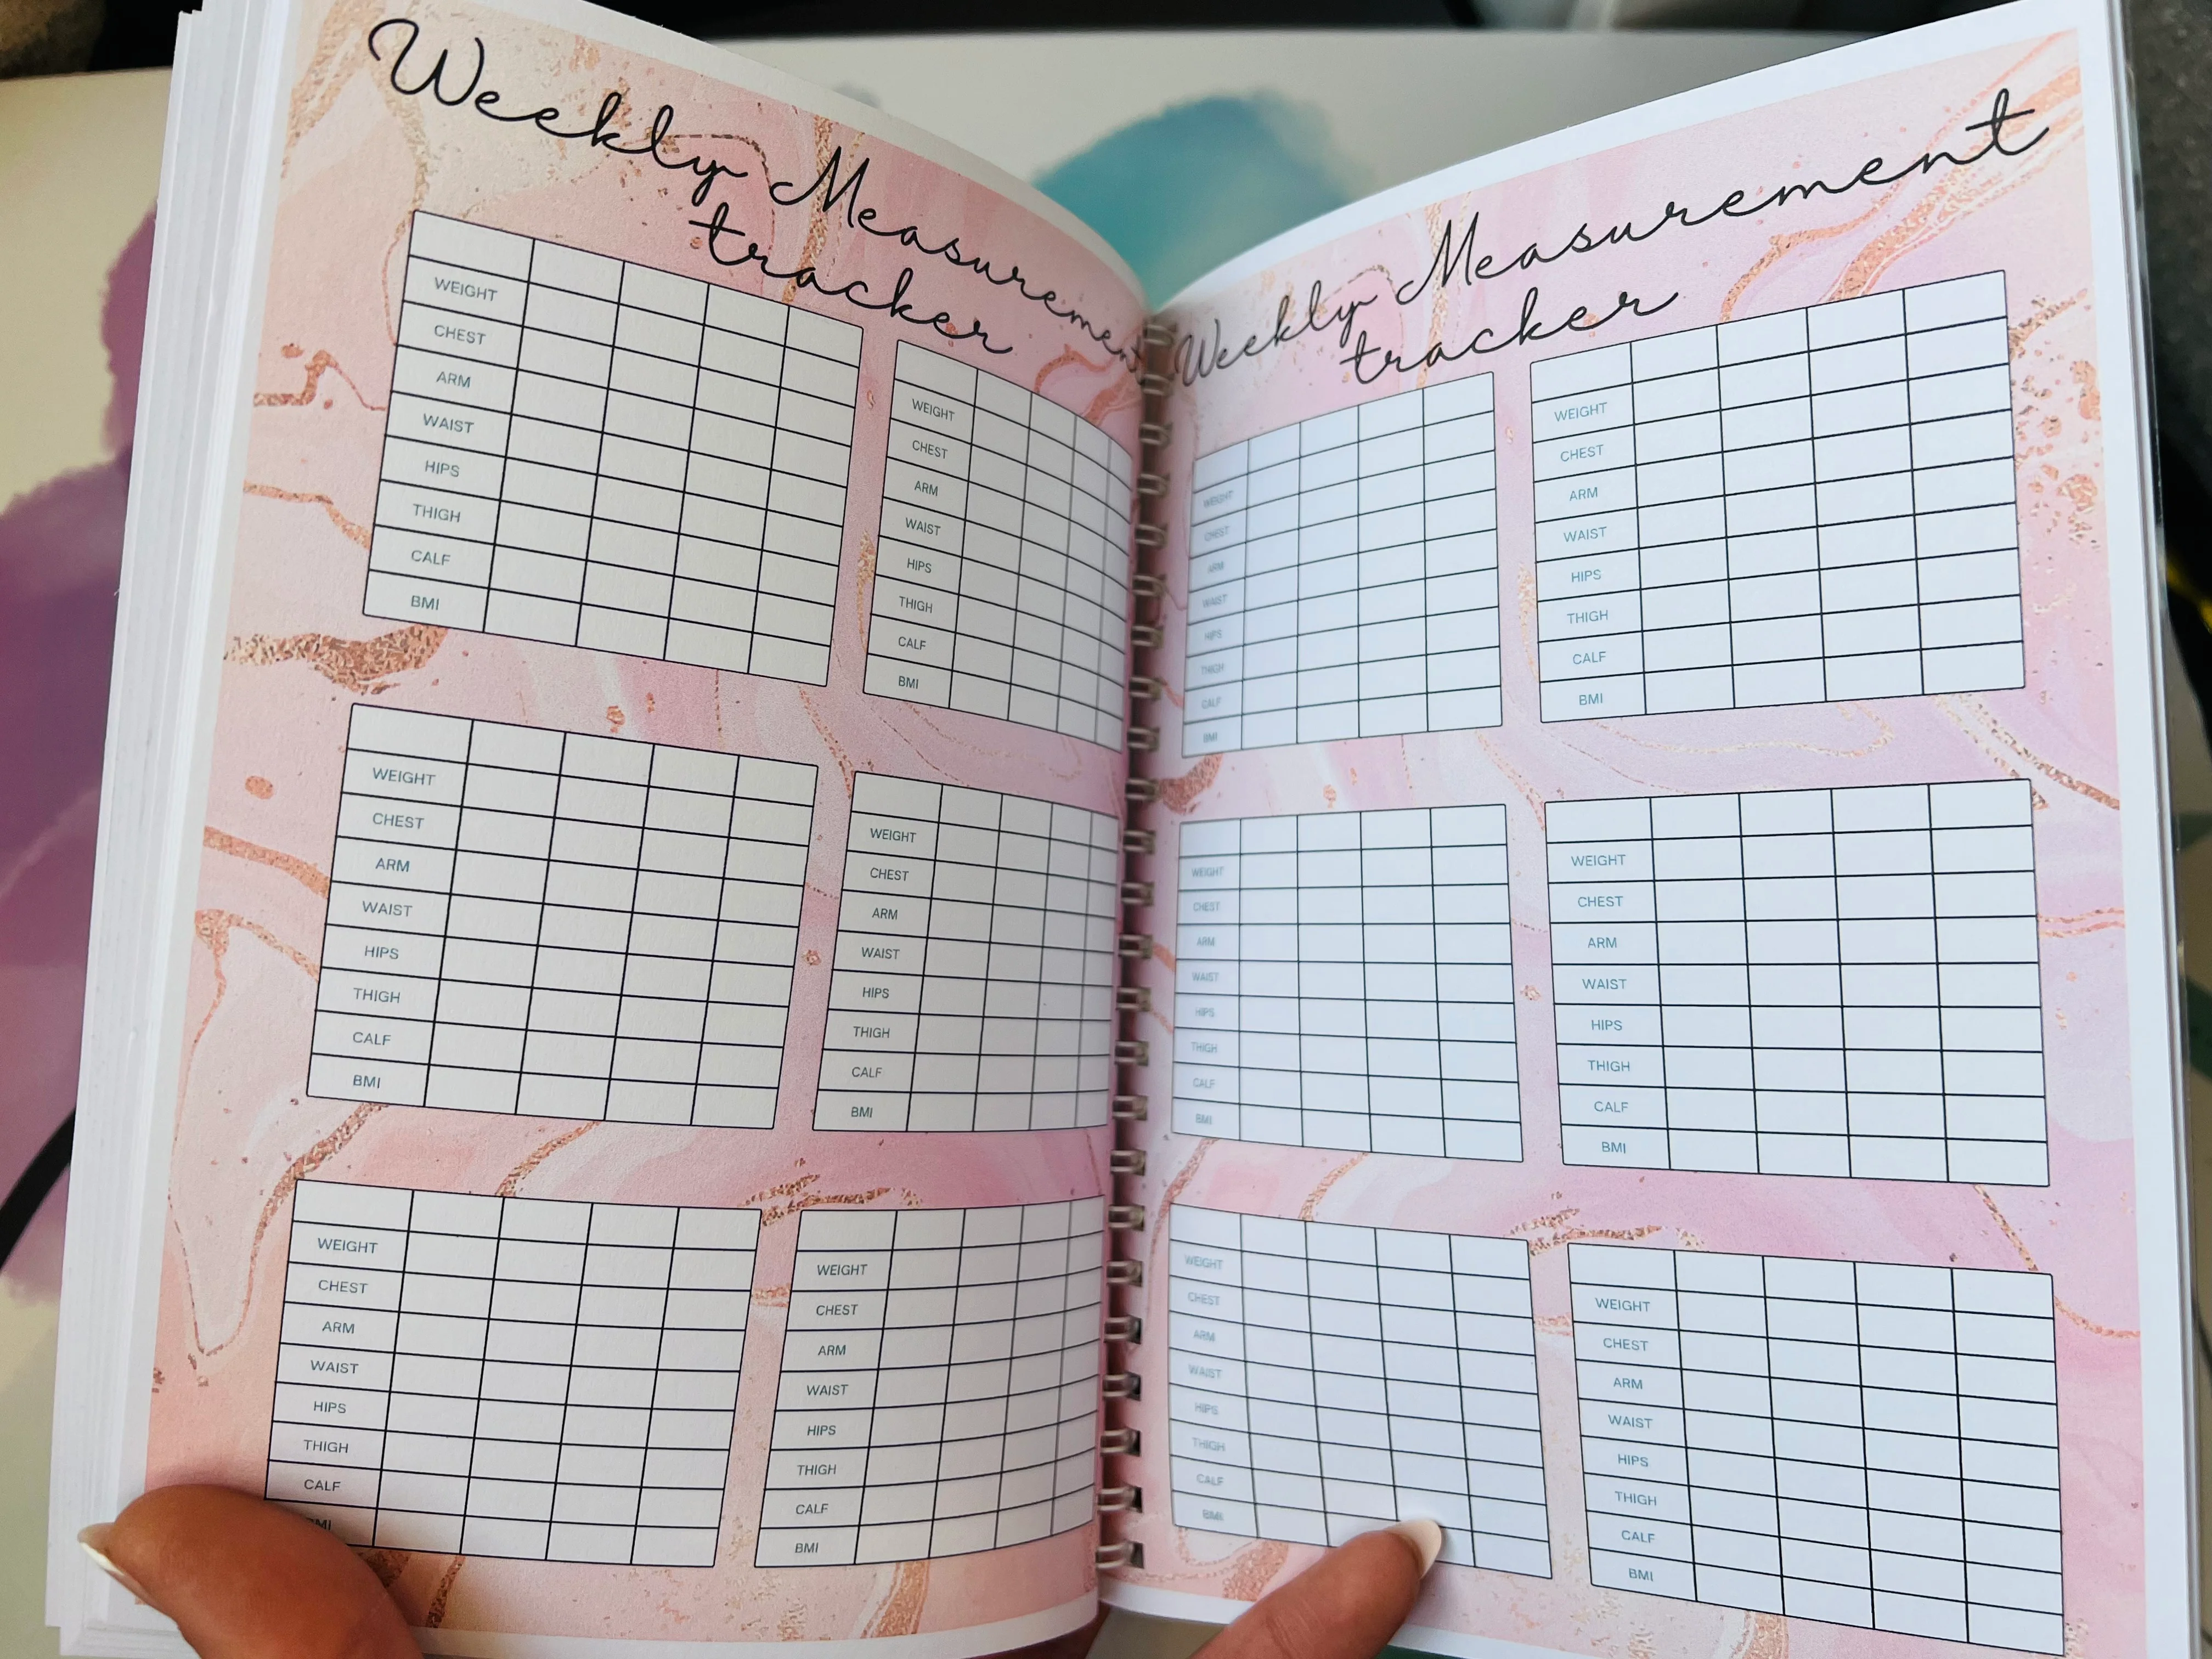 Weekly Measurement
tracker
WEIGHT
CHEST
ARM
WAIST
HIPS
THIGH
CALF
BMI
WEIGHT
CHEST
ARM
WAIST
HIPS
THIGH
CALF
BMI
WEIGHT
CHEST
ARM
WAIST
HIPS
THIGH
CALF
BMI
WEIGHT
CHEST
ARM
WAIST
HIPS
THIGH
CALF
BMI
WEIGHT
CHEST
ARM
WAIST
HIPS
THIGH
CALF
BMI
WEIGHT
CHEST
ARM
WAIST
HIPS
THIGH
CALF
BMI
Weekly Measurement
tracker
WEIGHT
CHEST
ARM
WAIST
HIPS
THIGH
CALF
BMI
WEIGHT
CHEST
ARM
WAIST
HIPS
THIGH
CALF
BMI
WEIGHT
CHEST
ARM
WAIST
HIPS
THIGH
CALF
BMI
WEIGHT
CHEST
ARM
WAIST
HIPS
THIGH
CALF
BMI
WEIGHT
CHEST
ARM
WAIST
HIPS
THIGH
CALF
BMI
WEIGHT
CHEST
ARM
WAIST
HIPS
THIGH
CALF
BMI